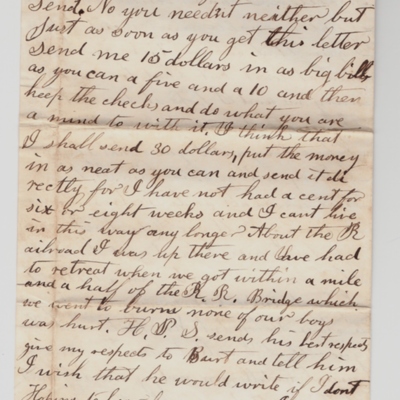 send. No you neednt neither but
just as soon as you get this letter
send me 15 dollars in as big bills
as you can a five and a 10 and then
keep the checks and do what you are
a mind to with it. I think that
I shall send 30 dollars, put the money
in as neat as you can and send it di
rectly for I have not had a cent for
six or eight weeks and I cant live
in this way any longer About the R
ailroad I was up there and we had
to retreat when we got within a mile
and a half of the R. R. Bridge which
we went to burn none of our boys
was hurt. H. P. S. sends his best respects
give my respects to Burt and tell him
I wish that he would write if I dont